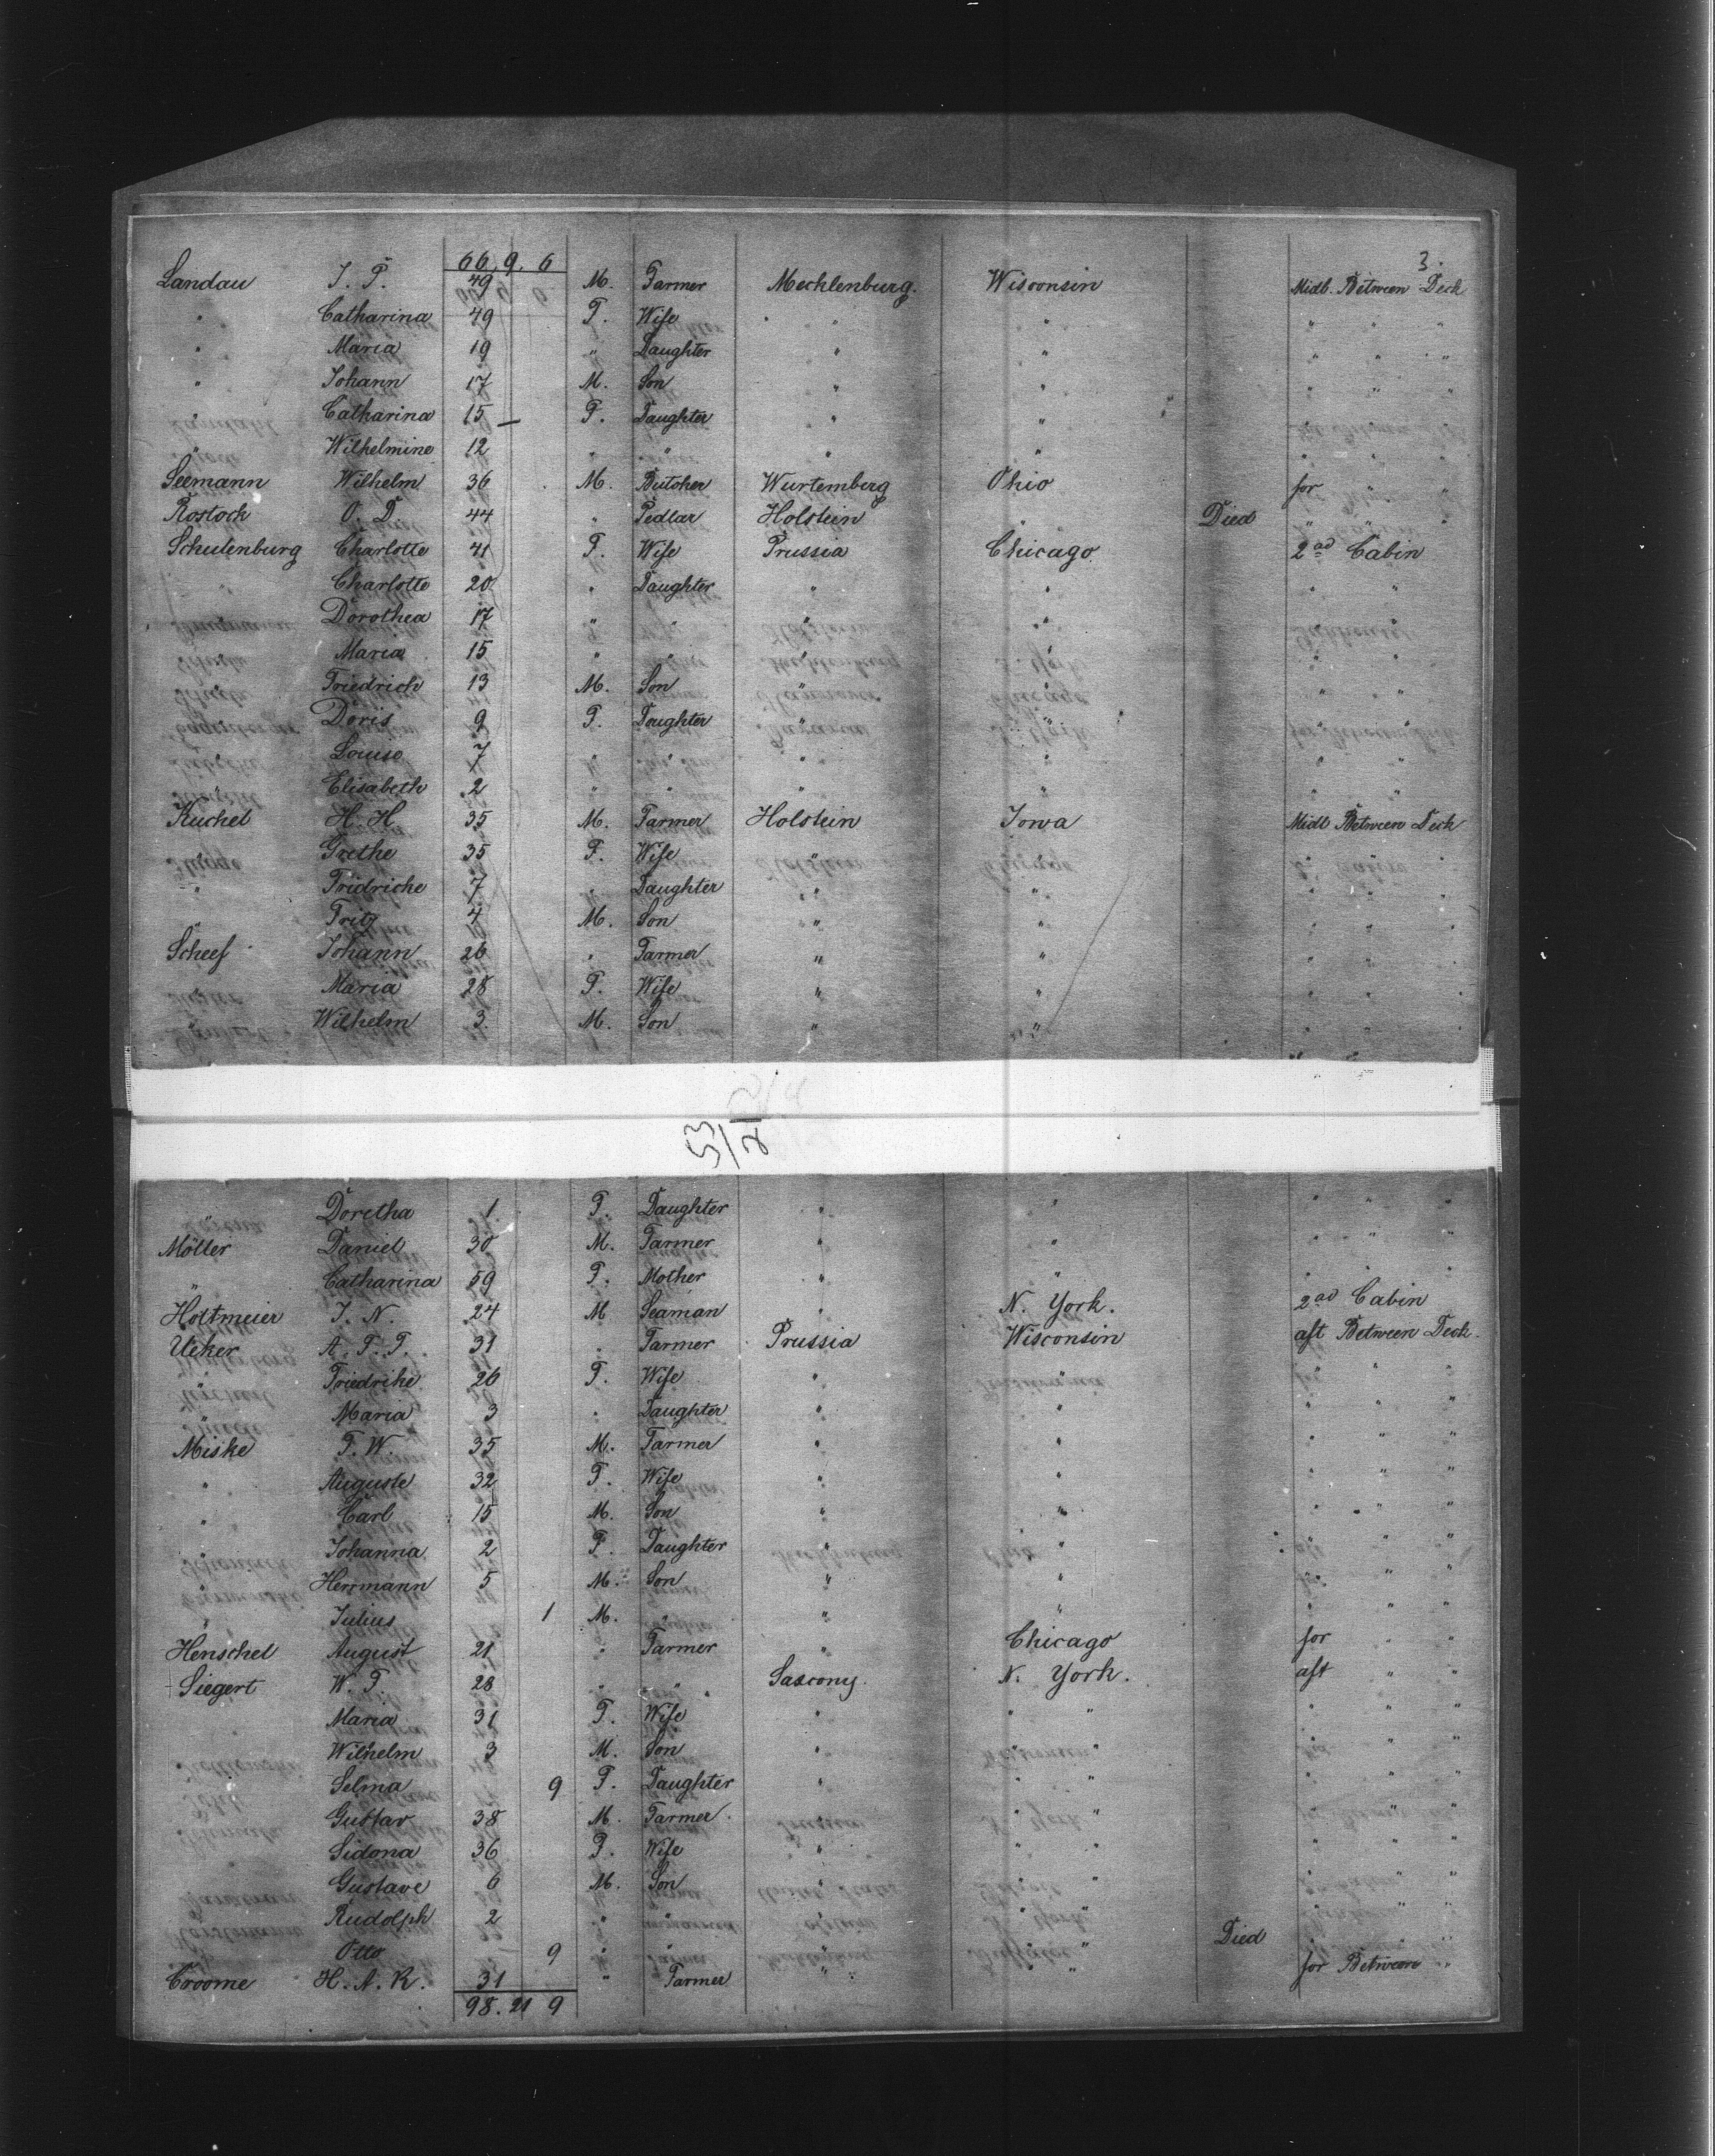 66 9. 6
3.
Landau J. F. 49 M. Farmer Mechlenburg. Wisconsin Midb. Between Deck
" Catharina 49 F. Wife " " " " "
" Maria 19 " Daughter " " " " "
" Johann 17 M. Son " " " " "
" Catharina 15 F. Daughter " " " " "
" Wilhelmine 12 " " " " " " "
Seemann Wilhelm 36 M. Butcher Wurtemberg Ohio for " "
Rostock O. D 44 " Pedlar Holstein " Died " " "
Schulenburg Charlotte 41 F. Wife Prussia Chicago 2ad Cabin
" Charlotte 20 " Daughter " " " "
" Dorothea 17 " " " " " "
" Maria 15 " " " " " "
" Friedrich 13 M. Son " " " "
" Doris 9 F. Daughter " " " "
" Louise 7 " " " " " "
" Elisabeth 2 " " " " " "
Kuchel H. H 35 M. Farmer Holstein Iowa Midb Between Deck
" Grethe 35 F. Wife " " " " "
" Fridriche 7 " Daughter " " " " "
" Fritz 4 M. Son " " " " "
Scheef Johann 26 " Farmer " " " " "
" Maria 28 F. Wife " " " " "
" Wilhelm 3. M. Son " " " " "
" Doretha 1 F. Daughter " " " " "
Möller Daniel 30 M. Farmer " " " " "
" Catharina 59 F. Mother " " " " "
Holtmeier J. N. 24 M Seaman " N. York. 2ad Cabin
Ueker A. F. F. 31 " Farmer Prussia Wisconsin aft Between Deck.
" Friedrike 26 F. Wife " " " " "
" Maria 3 " Daughter " " " " "
Miske F. W. 35 M. Farmer " " " " "
" Auguste 32 F. Wife " " " " "
" Carl 15 M. Son " " " " "
" Johanna 2 F. Daughter " " " " "
" Herrmann 5 M. Son " " " " "
" Julius 1 M. " " " " " "
Henschel August 21 " Farmer " Chicago for " "
Siegert W. F. 28 " " Saxcony. N. York. aft " "
Maria 31 F. Wife " " " " " "
Wilhelm 3 M. Son " " " " " "
Selma 9 F. Daughter " " " " " "
Gustav 38 M. Farmer. " " " " " "
Sidona 36 F. Wife " " " " " "
Gustave 6 M. Son " " " " " "
Rudolph 2 " " " " " " " "
Otto 9 " " " " " Died " " "
Croome H. A. R. 31 " Farmer " " " for Between "
98. 21 9